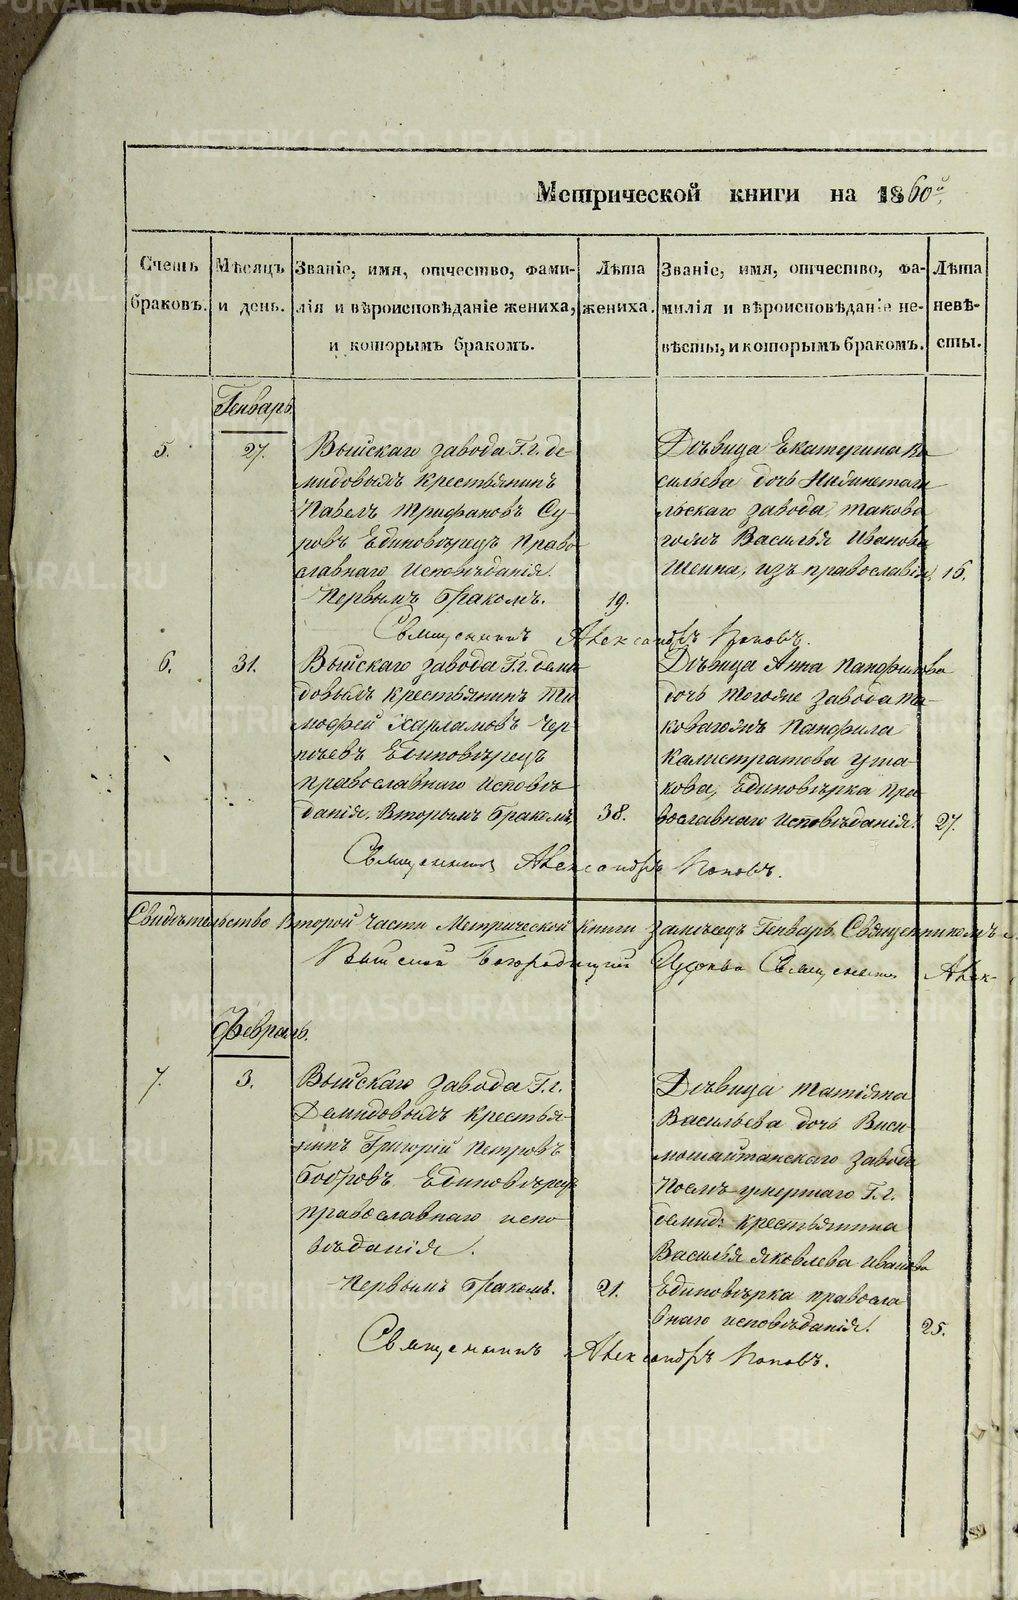 Метрической книги на 1860й.
Счетъ браковъ.
Мѣсяцъ и день.
Званіе, имя, отчество, фами-
лія и вѣроисповѣданіе жениха,
и которымъ бракомъ.
Лѣта
жениха.
Званіе, имя, отчество, фа-
милія и вѣроисповѣданіе не-
вѣсты, и которымъ бракомъ.
Лѣта
невѣ-
сты.
Генварь
5.
27.
Выйскаго завода Г.г. Де
мидовыхъ крестьянинъ
Павелъ Трифановъ Су
ровъ Единовѣрецъ Право
славнаго Исповѣданія.
Первымъ бракомъ.
19.
Дѣвица Екатерина Ва
сильева дочь Нижнетаги
льскаго завода, таково
гожъ Василья Иванова
Шеина, изъ православія,
16.
Священникъ Александръ Поповъ.
6.
31.
Выйскаго завода Г.г. Деми
довыхъ крестьянинъ Ти
мофей Харламовъ Чер
Единовѣрецъ
православнаго Исповѣ
данія. Вторымъ бракомъ,
38.
Дѣвица Анна Панфилова
дочь тогоже завода та
ковагожъ Панфила
Калистратова Уша
кова, Единовѣрка пра
вославнаго исповѣданія.
27.
Священникъ Александръ Поповъ.
Свидѣтельство Второй части Метрической книги за мѣсяцъ Генварь Священникомъ
Выйской Богородицкой Церкви Священникъ Алек-
Февраль.
7.
3.
Выйскаго завода Г.г.
Демидовыхъ крестья-
нинъ Григорій Петровъ
Бобровъ Единовѣрецъ
православнаго испо
вѣданія.
Первымъ бракомъ.
21.
Дѣвица Татіяна
Васильева дочь Виси
мошайтанскаго завода
Послѣ умершаго Г.г.
Демид: крестьянина
Василья Яковлева Иванова
Единовѣрка правосла
внаго исповѣданія.
25.
Священникъ Александръ Поповъ.
METRIKI.GASO-URAL.RU